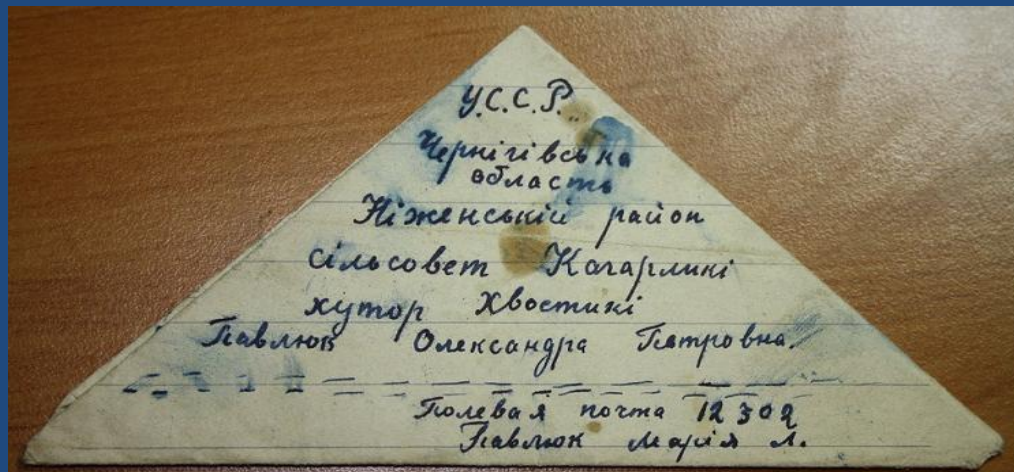 У.С.С.Р.
Чернігівська
область
Ніженській район
сільсовет Кагарликі
хутор Хвостикі
Павлюк Олександра Петровна.
Полевая почта 12302
Павлюк Марія Л.